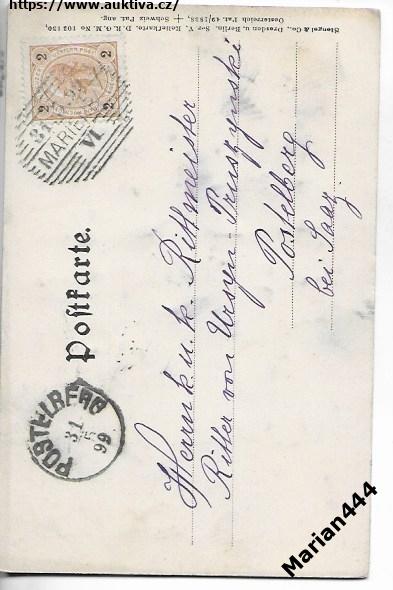 https://www.auktiva.cz/
Stengel & Co., Dresden u. Berlin. Ser. V. Reliefkarte. D. R. G. M. No 103 156,
Oesterreich Pat. 49/1838, + Schweiz Pat. ang.
2 2
2 2
MARIEN
VI
Postkarte.
POSTELBERG
31
5
99
Herrn k. u. k. Rittmeister
Ritter von Ursyn-Pruszynski
Postelberg
bei Saaz
Marian444